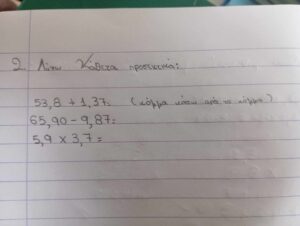 2. Λύνω κάθετα προσεκτικά:
53,8 + 1,37= (κόμμα κάτω από το κόμμα)
65,90 - 9,87=
5,9 x 3,7=